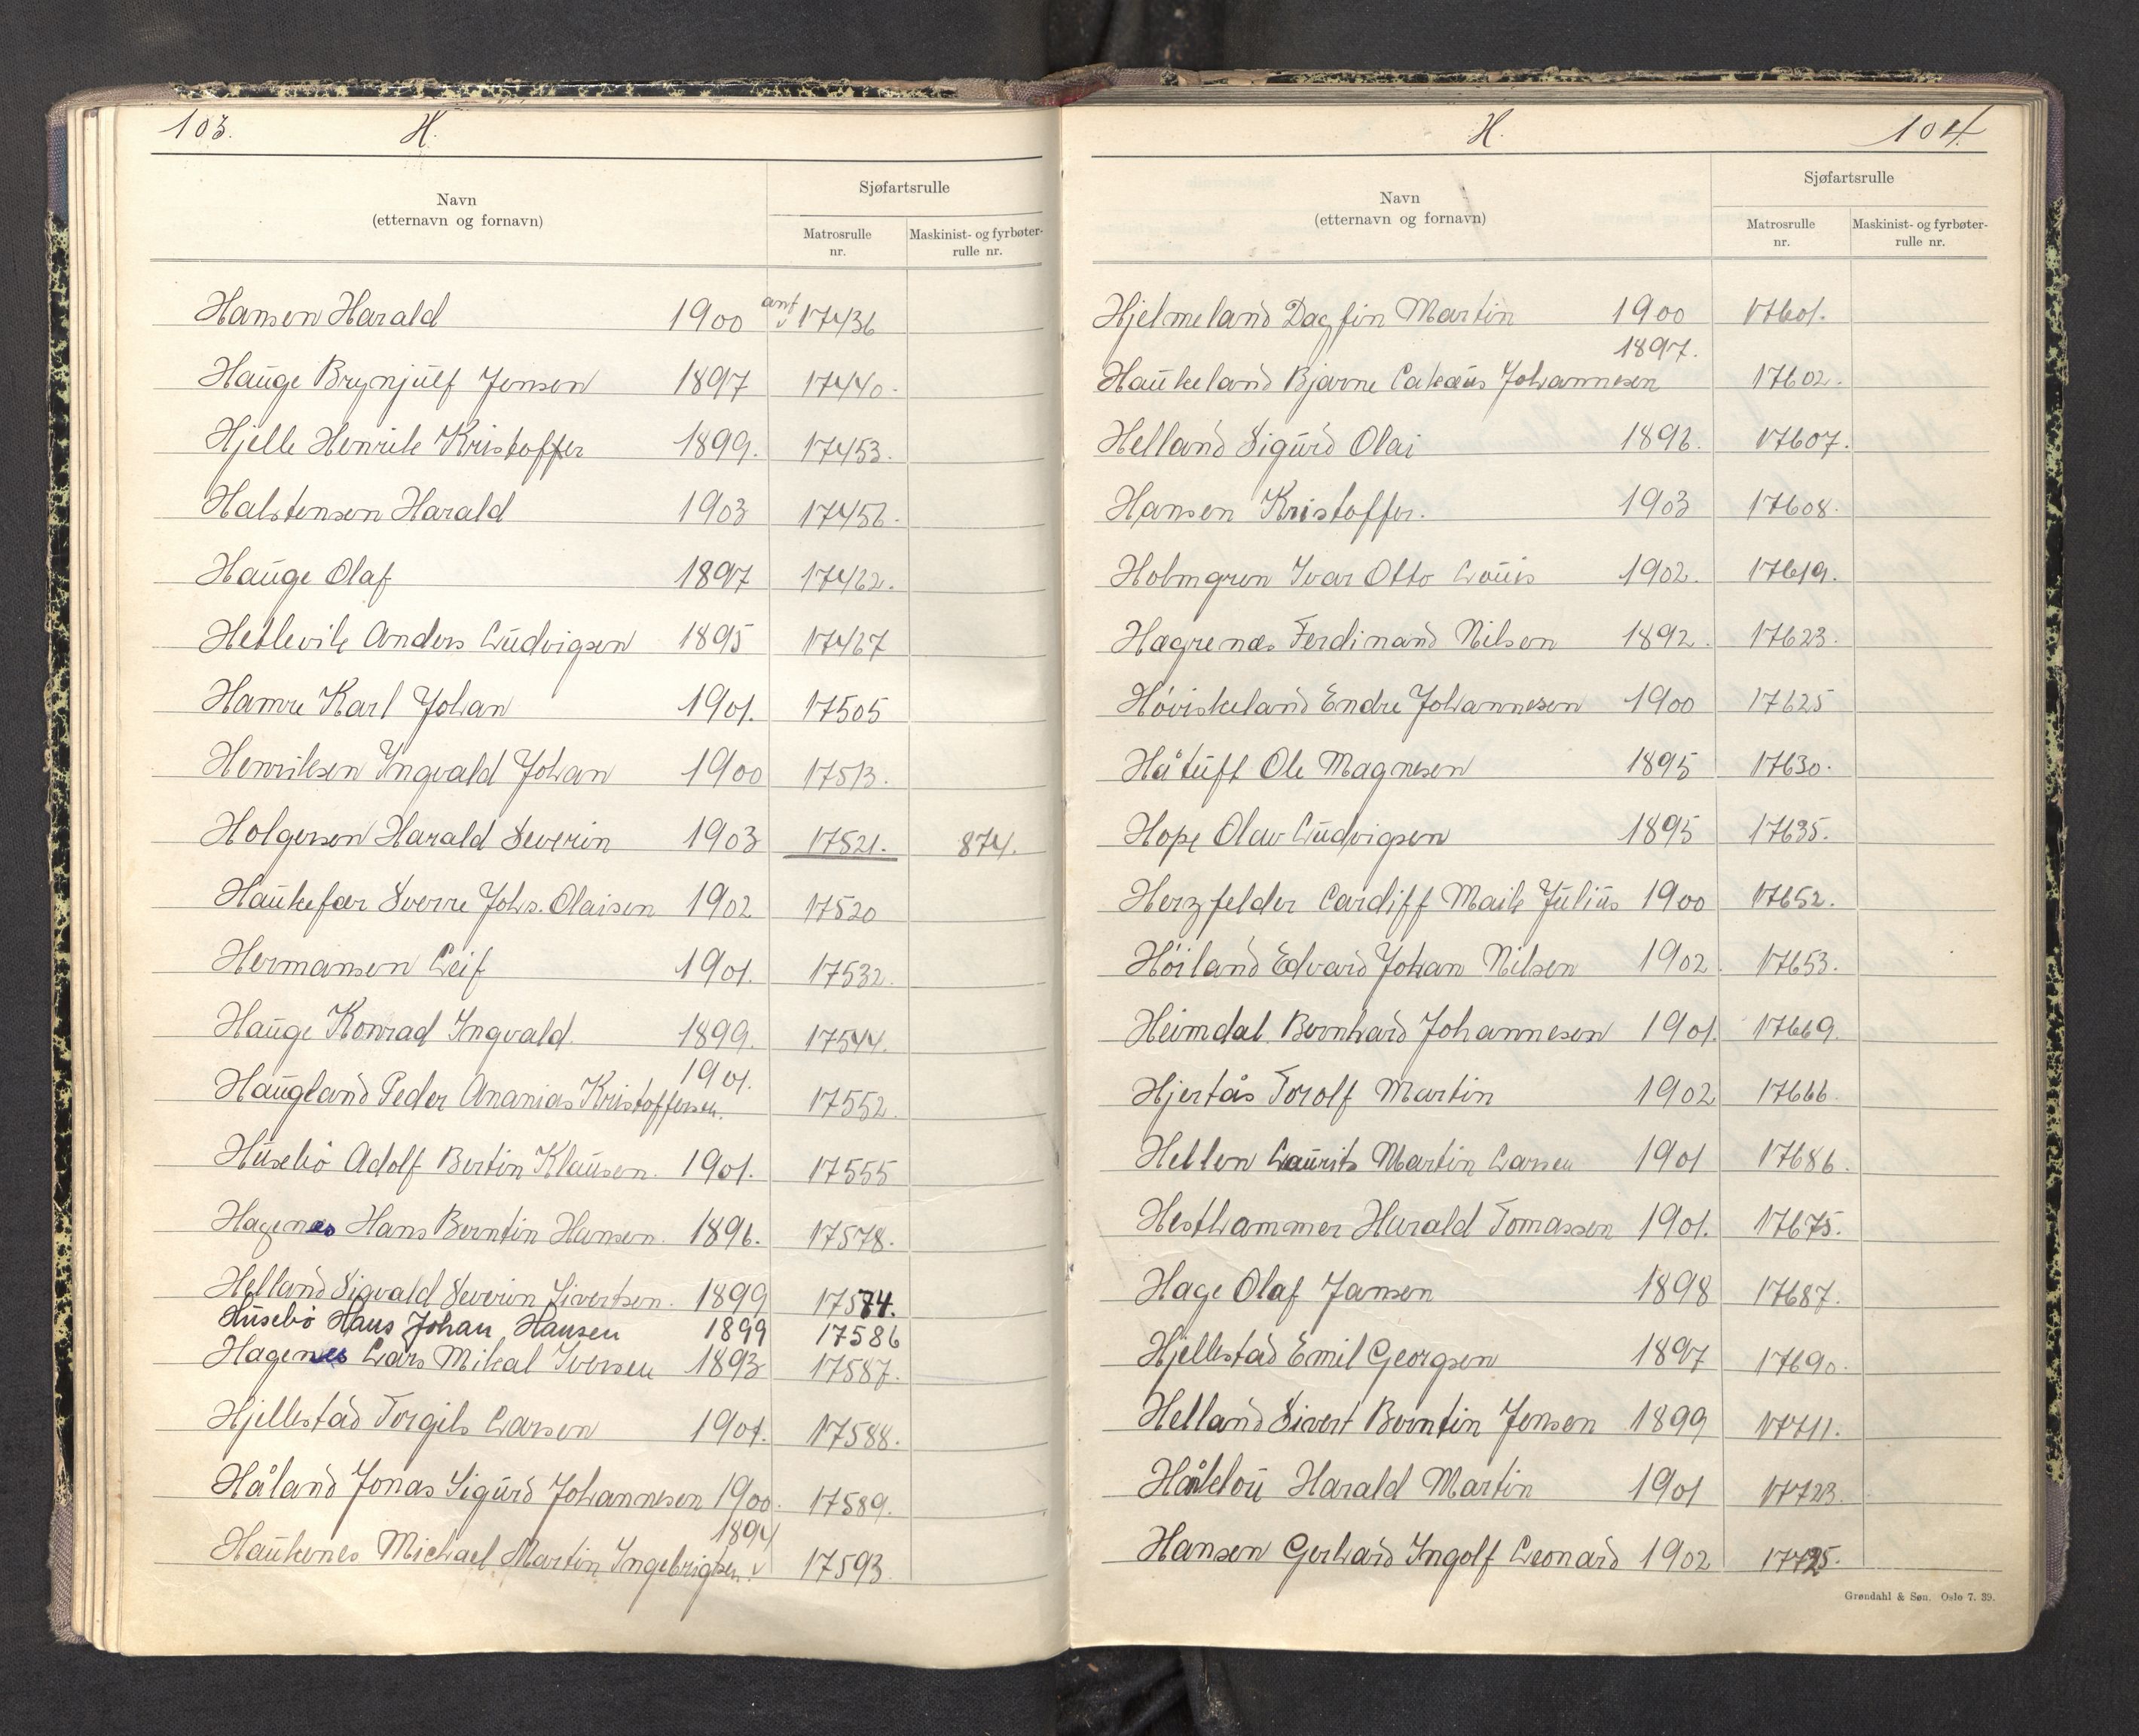 103. H.
Navn
(etternavn og fornavn)
Sjøfartsrulle
Matrosrulle nr.
Maskinist- og fyrbøter-rulle nr.
Hansen Harald 1900 ant v 17436
Hauge Brynjulf Jensen 1897 17440.
Hjelle Henrik Kristoffer 1899. 17453.
Halstensen Harald 1903 17456.
Hauge Olaf 1897 17462.
Hetlevik Anders Ludvigsen 1895 17467
Hamre Karl Johan 1901. 17505
Henriksen Ingvald Johan 1900 17513.
Holgersen Harald Severin 1903 17521. 874.
Haukefær Sverre Johs. Olaisen 1902 17520
Hermansen Leif 1901. 17532.
Hauge Konrad Ingvald. 1899. 17544.
Haugland Peder Ananias Kristoffersen. 1901. 17552.
Husebö Adolf Bertin Klausen. 1901. 17555
Hagenes Hans Berntin Hansen. 1896. 17578.
Helland Sigvald Severin Sivertsen. 1899 17574.
Husebö Hans Johan Hansen 1899 17586
Hagenes Lars Mikal Iversen 1893 17587.
Hjellestad Torgils Larsen 1901. 17588.
Håland Jonas Sigurd Johannesen 1900. 17589.
Haukenes Michael Martin Ingebrigtsen. v 1894 17593
H. 104.
Navn
(etternavn og fornavn)
Sjøfartsrulle
Matrosrulle nr.
Maskinist- og fyrbøter-rulle nr.
Hjelmeland Dagfin Martin 1900 17601.
Haukeland Bjarne Johannesen 1897. 17602.
Helland Sigurd Olai 1896. 17607.
Hansen Kristoffer. 1903 17608.
Holmgren Ivar Otto Louis 1902. 17619.
Hagrenæs Ferdinand Nilsen 1892. 17623.
Höviskeland Endre Johannesen 1900 17625
Håtuft Ole Magnesen 1895 17630.
Hope Olav Ludvigsen 1895 17635.
Herzfelder Cardiff Maik Julius 1900 17652.
Höiland Edvard Johan Nilsen 1902. 17653.
Heimdal Bernhard Johannesen 1901. 17669.
Hjertås Torolf Martin 1902 17666.
Hellen Laurits Martin Larsen 1901 17686.
Hesthammer Harald Tomassen 1901. 17675.
Hage Olaf Jansen 1898 17687.
Hjellestad Emil Georgsen 1897 17690.
Helland Sivert Berntin Jensen 1899 17711.
Harald Martin 1901 17723.
Hansen Gerhard Ingolf Leonard 1902 17725.
Grøndahl & Søn. Oslo 7. 39.